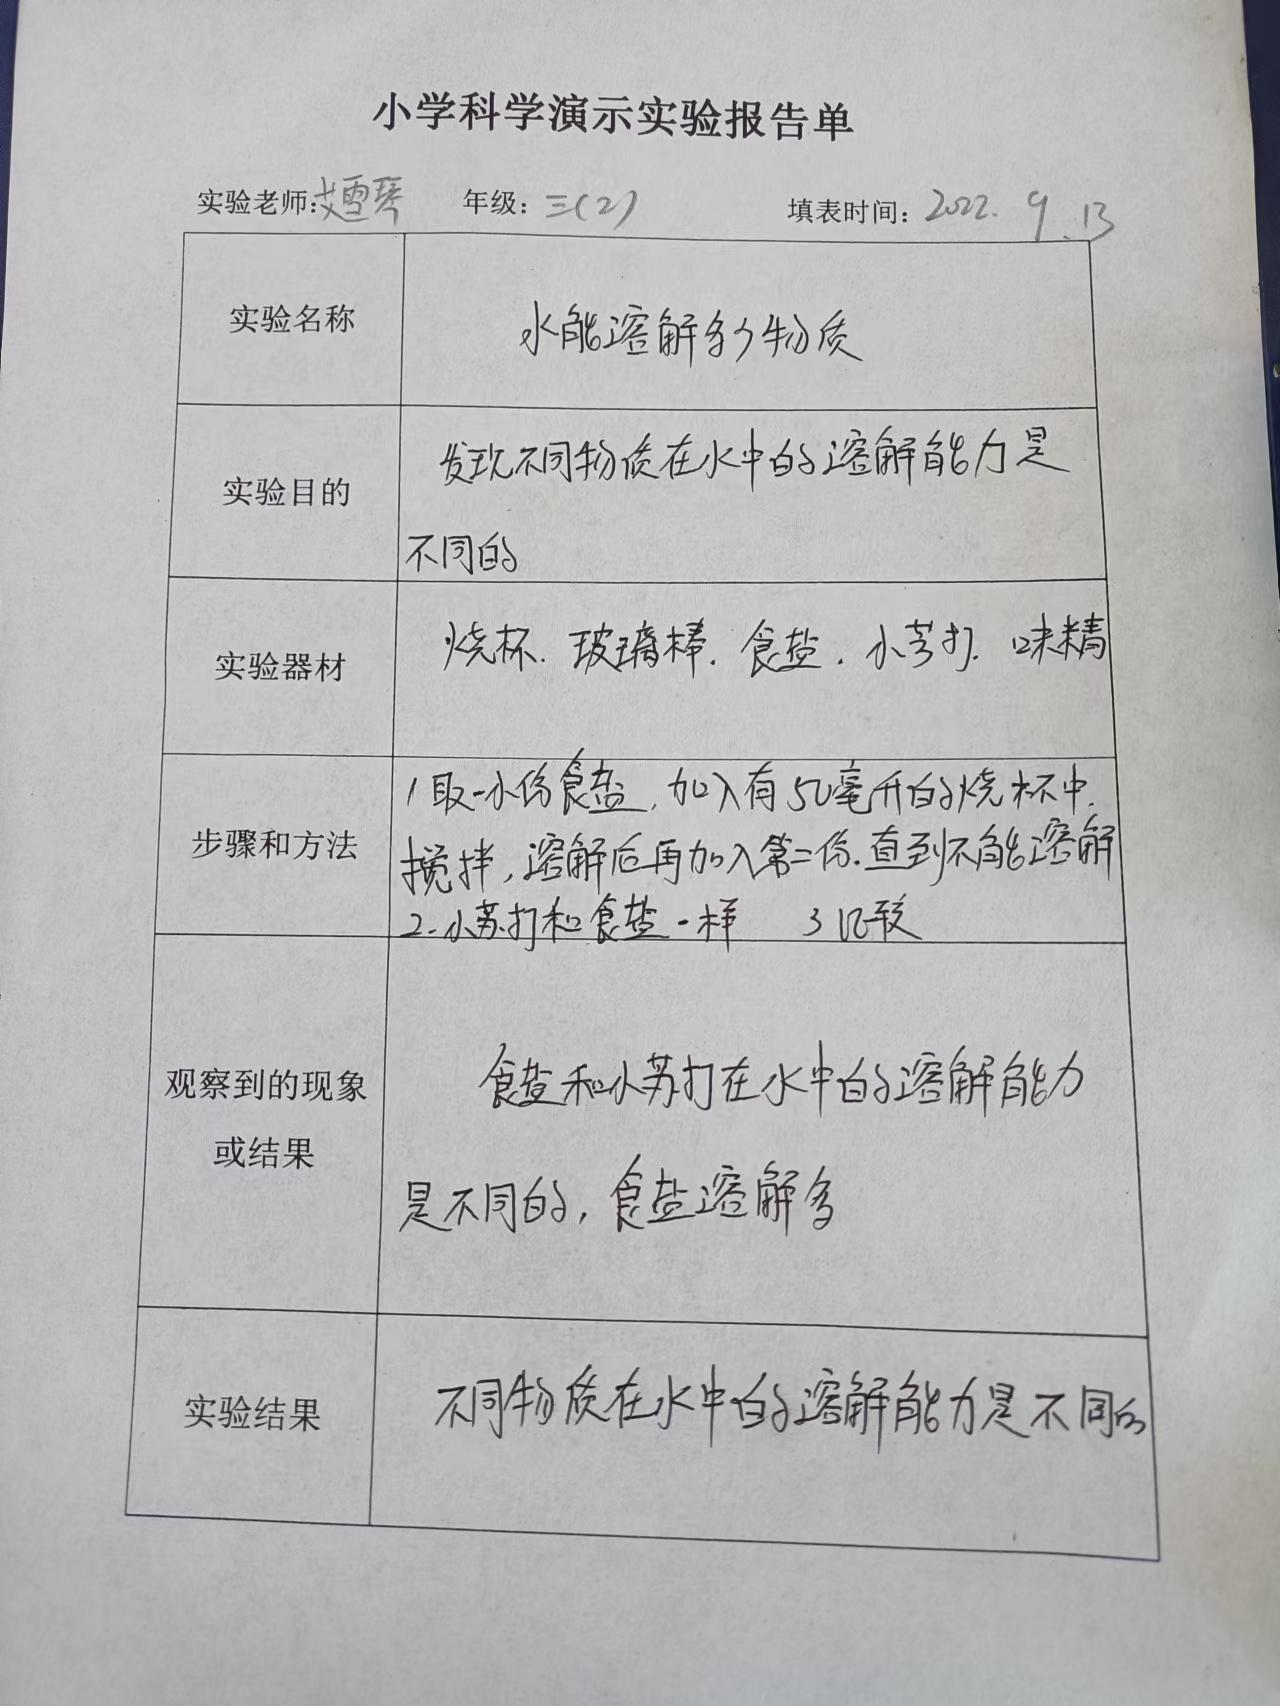 小学科学演示实验报告单
实验老师:艾雪琴 年级:三(2) 填表时间:2022.9.13
实验名称 水能溶解多少物质
实验目的 发现不同物质在水中的溶解能力是
不同的
实验器材 烧杯.玻璃棒.食盐.小苏打.味精
步骤和方法 1取一小份食盐,加入有50毫升的烧杯中.
搅拌,溶解后再加入第二份.直到不能溶解
2.小苏打和食盐一样 3比较
观察到的现象
或结果
食盐和小苏打在水中的溶解能力
是不同的,食盐溶解多
实验结果 不同物质在水中的溶解能力是不同的